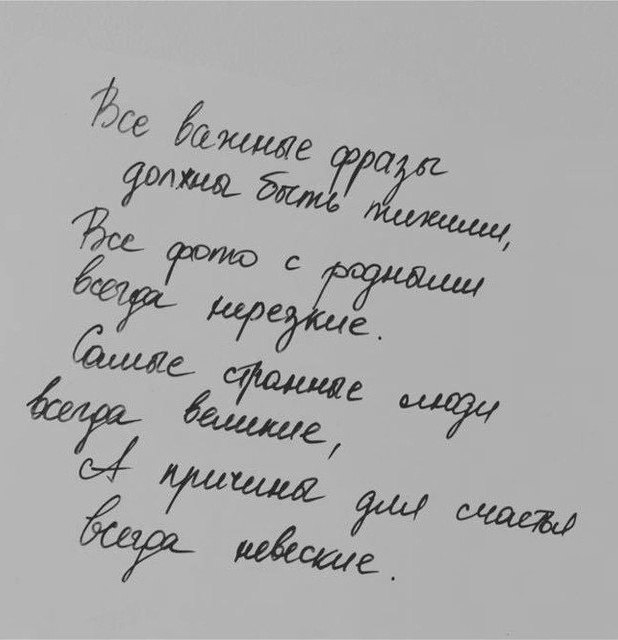 Все важные фразы
должны быть тихими,
Все фото с родными
всегда нерезкие.
Самые странные люди
всегда великие,
А причины для счастья
всегда невеские.